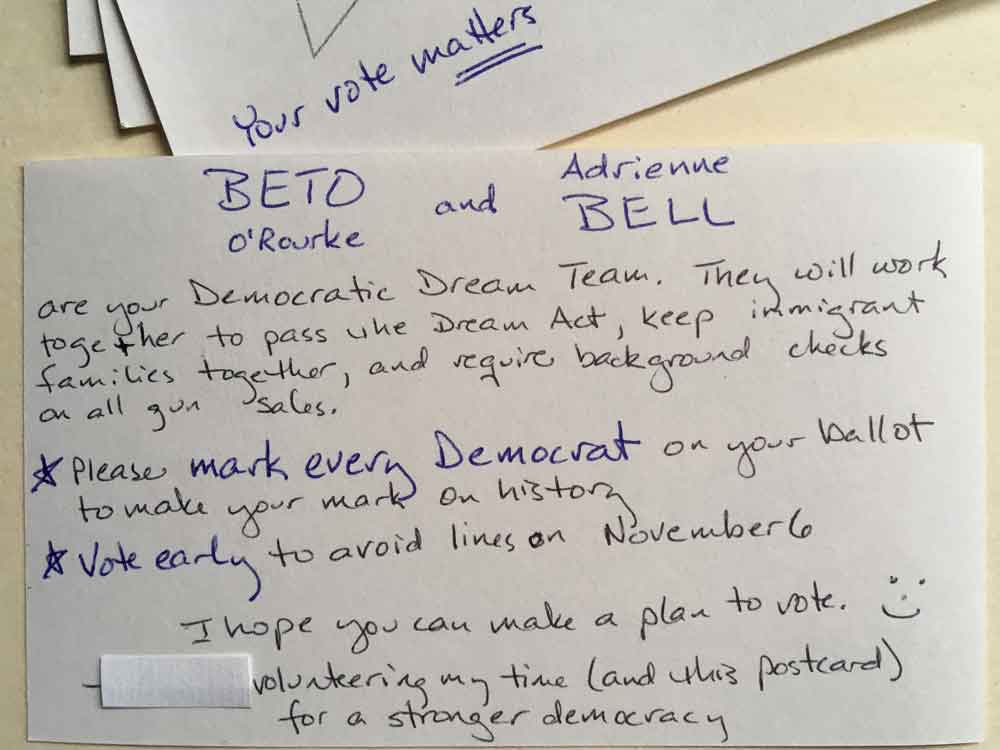 Your vote matters
BETO and Adrienne
O'Rourke BELL
are your Democratic Dream Team. They will work
together to pass the Dream Act, keep immigrant
families together, and require background checks
on all gun sales.
☆ Please mark every Democrat on your ballot
to make your mark on history
☆ Vote early to avoid lines on November 6
I hope you can make a plan to vote. :)
- volunteering my time (and this postcard)
for a stronger democracy